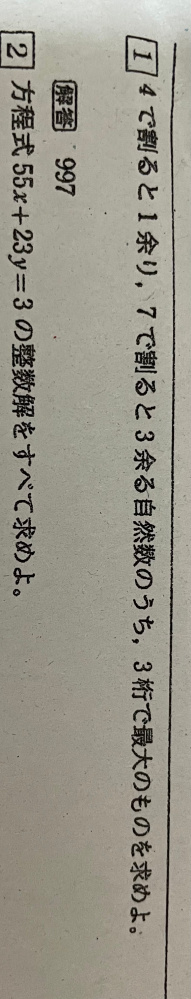 1 4で割ると1余り,7で割ると3余る自然数のうち,3桁で最大のものを求めよ。
解答 997
2 方程式 55x+23y=3 の整数解をすべて求めよ。